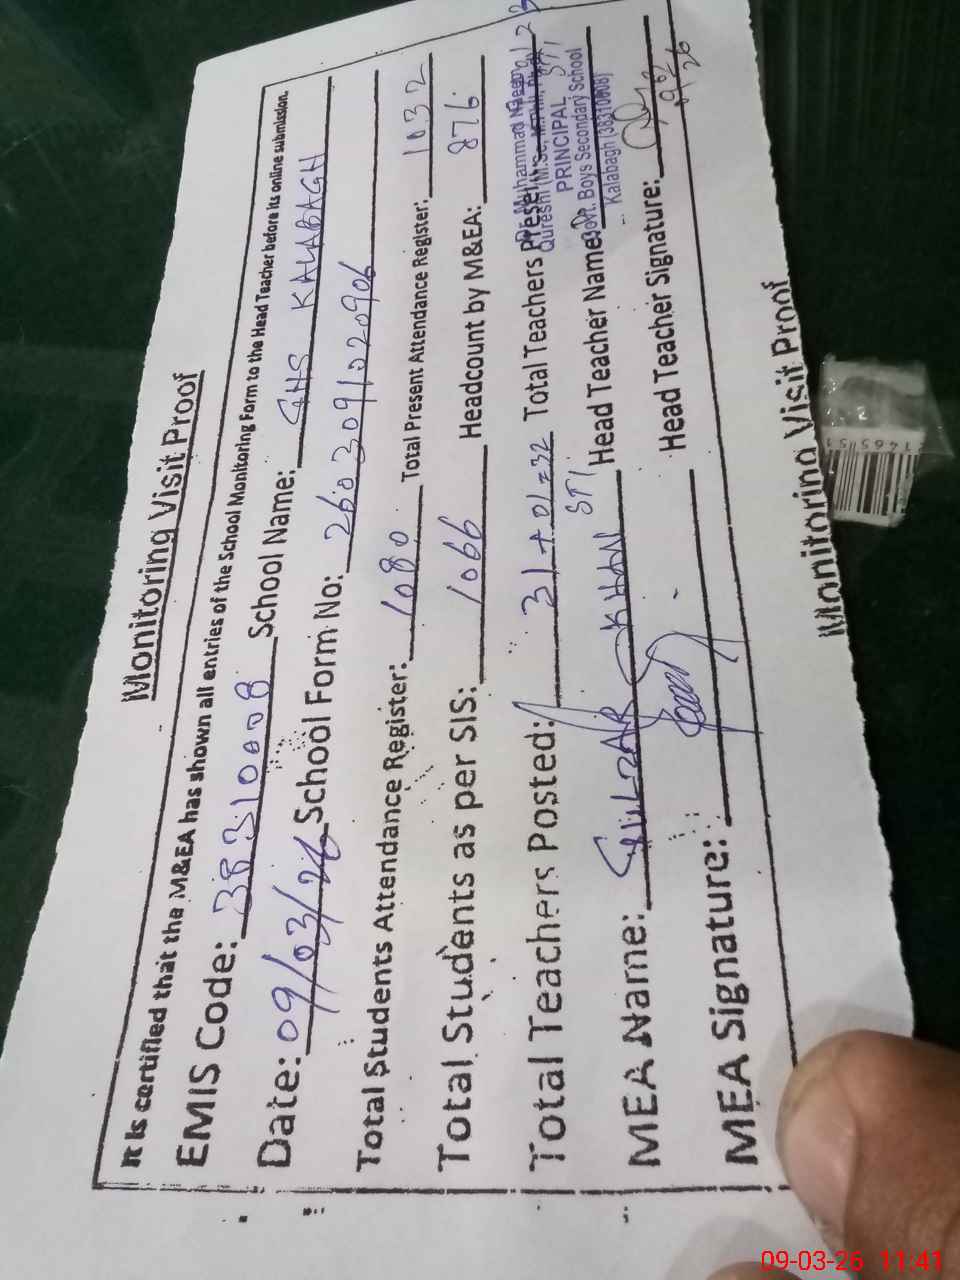 Monitoring Visit Proof
It is certified that the M&EA has shown all entries of the School Monitoring Form to the Head Teacher before its online submission.
EMIS Code: 38310008 School Name: GHS KALABAGH
Date: 09/03/26 School Form No: 2603091020906
Total Students Attendance Register: 1080 Total Present Attendance Register: 1032
Total Students as per SIS: 1066 Headcount by M&EA: 876
Total Teachers Posted: 31+01=32 Total Teachers Present:
STI
Muhammad Naeem
Qureshi
PRINCIPAL
Govt. Boys Secondary School
Kalabagh (38310008)
MEA Name: GULZAR KHAN Head Teacher Name:
MEA Signature: Head Teacher Signature:
Monitoring Visit Proof
09-03-26 11:41